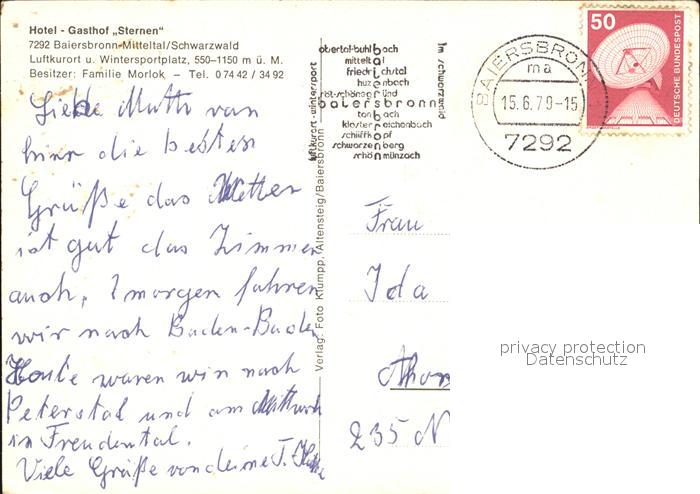 Hotel - Gasthof „Sternen"
7292 Baiersbronn-Mitteltal/Schwarzwald
Luftkurort u. Wintersportplatz, 550–1150 m ü. M.
Besitzer: Familie Morlok – Tel. 0 74 42 / 34 92
Liebe Mutti von
hier die besten
Grüße das Wetter
ist gut das Zimmer
auch, morgen fahren
wir nach Baden-Baden
Heute waren wir nach
Peterstal und am Mittwoch
in Freudental.
Viele Grüße von deine J.
Verlag: Foto Klumpp, Altensteig/Baiersbronn
luftkurort-wintersport
obertal-buhlbach
mitteltal
friedrichstal
huzenbach
röt-schönegründ
baiersbronn
tonbach
klosterreichenbach
schliffkopf
schwarzenberg
schönmünzach
im schwarzwald
BAIERSBRONN
ma
15.6.79-15
7292
50
DEUTSCHE BUNDESPOST
Frau
Ida
235 N
privacy protection
Datenschutz